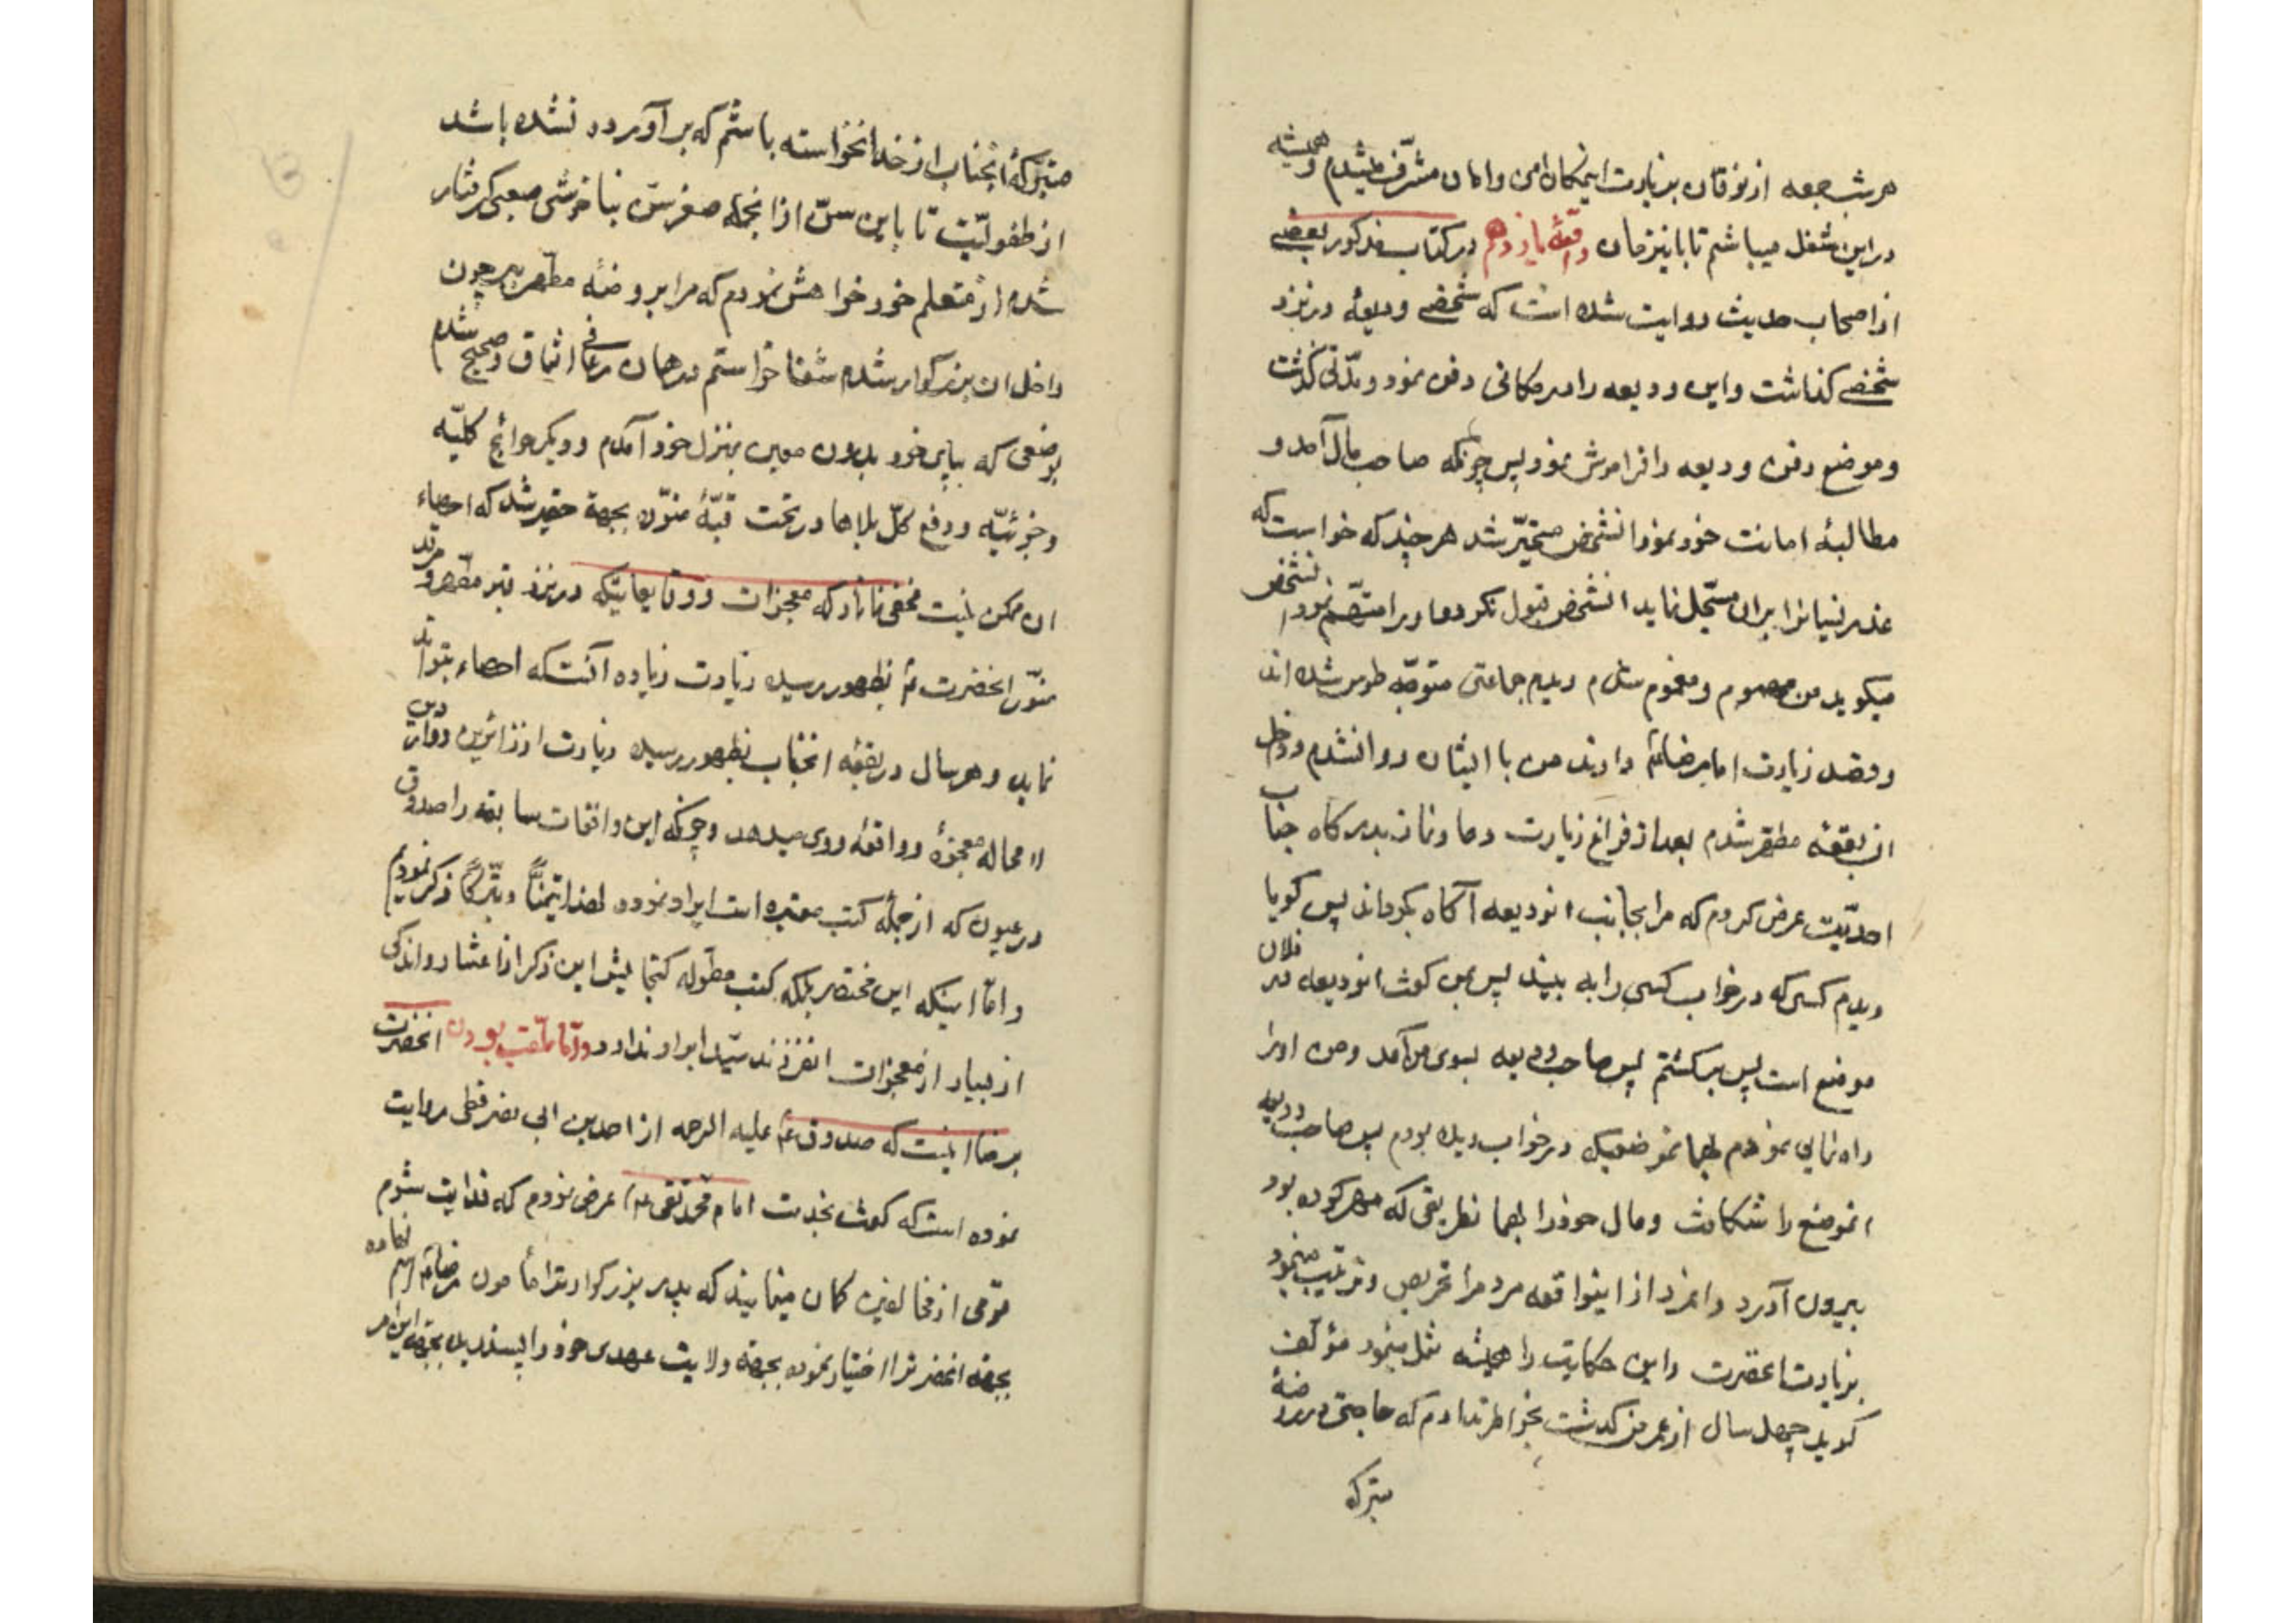 هر شب جمعه از نوقان بزیارت اینمکان امن و امان مشرّف میشدم و همیشه
در این شغل میباشم تا باینزمان واقعهٔ یازدهم در کتاب مذکور بعضے
از اصحاب حدیث روایت شده است که شخصے ودیعهٔ در نزد
شخصے کذاشت و این ودیعه را در مکانی دفن نمود و مدّتی کذشت
و موضع دفن ودیعه را فراموش نمود پس چونکه صاحب مال آمد و
مطالبهٔ امانت خود نمود انشخص متحیّر شد هر چند که خواست که
عذر نسیانرا بران مسجّل نماید انشخص قبول نکرد و او را متّهم نمود انشخص
میکوید من مهموم و مغموم شدم دیدم جماعتی متوجّه طوس شده اند
و قصد زیارت امام رضا ع دارند من با ایشان روانشدم و داخل
ان بقعهٔ مطهر شدم بعد از فراغ زیارت دعا و نماز بدرکاه جناب
احدیّت عرض کردم که مرا بجانب انودیعه آکاه بکرداند پس کویا
دیدم کسی که در خواب کسی را به بیند پس بمن کفت انودیعه در فلان
موضع است پس برکشتم پس صاحب ودیعه بسوی من آمد و من او را
راه نمایی نمودم بهمانموضعیکه در خواب دیده بودم پس صاحب ودیعه
انموضع را شکافت و مال خود را بهما نطریقی که مهر کرده بود
بیرون آورد و انمرد از اینواقعه مردم را تحریص و ترغیب مینمود
بزیارت انحضرت و این حکایت را همیشه نقل مینمود مؤلف
کوید چهل سال از عمر من کذشت بخواطر ندارم که حاجتی در روضهٔ
متبرکه
متبرّکهٔ انجناب از خدا نخواسته باشم که بر آورده نشده باشد
از طفولیّت تا باین سنّ از انجمله صغر سنّ بناخوشی صعبی کرفتار
شدم از متعلم خود خواهش نمودم که مرا بروضهٔ مطهر ببر چون
داخل ان بزرکوار شدم شفا خواستم در همان دعا فی اتفاق و صحیح شدم
بوضعی که بپای خود بدون معین بمنزل خود آمدم و دیکر حوائج کلیّه
و جزئیّه و دفع کلّ بلاها در تحت قبّهٔ منوّر بجهة حقیر شد که احصاء
ان ممکن نیست مخفی نماناد که معجزات و وقایعاتیکه در نزد قبر مطهر و مرقد
منوّر انحضرت ع بظهور رسیده زیادت زیاده آنست که احصاء بتواند
نماید و هر سال در بقعهٔ انجناب بظهور رسیده زیادت از زائرین و واردین
لا محاله معجزهٔ و واقعهٔ روی میدهد و چونکه این واقعات سابقه را صدوق
در عیون که از جملهٔ کتب معتبره است ایراد نموده لهذا تیمّناً و تبرّکاً ذکر نمودیم
و امّا اینکه این مختصر بلکه کتب مطوّله کنجایش این ذکر از اعشار و اندکی
از بسیار از معجزات انفرزند سیّد ابرار ندارد و امّا ملّقب بودن انحضرت
برضا اینست که صدوق علیه الرحمه از احمد بن ابی نصر بزنطی روایت
نموده است که کفت بخدمت امام محمّد تقی ع عرض نمودم که فدایت شوم
قومی از مخالفین کمان مینمایند که پدر بزرکوار ترا مأمون رضا نام نهاده
بجهته انحضرترا اختیار نموده بجهته ولایت عهدی خود و پسندیده بجهته این امر